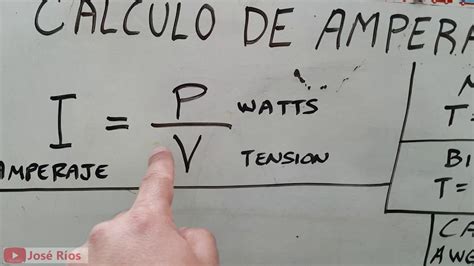 CALCULO DE AMPERA
I = P WATTS
V TENSION
AMPERAJE
M
T=
BI
T=
CA
AWG
José Ríos